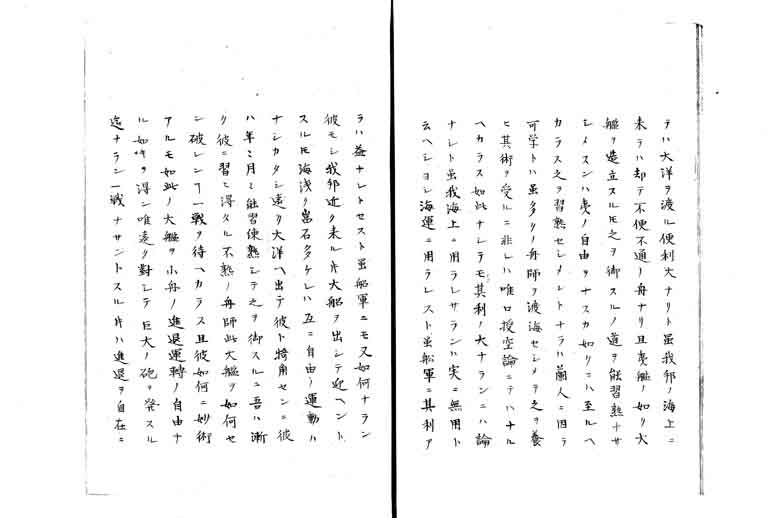 テハ大洋ヲ渡ル便利大ナリト虽我邦ノ海上ニ
来テハ却テ不便不通ノ舟ナリ且夷艦ノ如ク大
艦ヲ造立スルモ之ヲ御スルノ道ヲ能習熟ナサ
シメスンハ夷ノ自由ヲナスカ如クニハ至ルヘ
カラス之ヲ習熟セシメントナラハ蘭人ニ因テ
可学トハ虽多クノ舟師ヲ渡海セシメヲ之ヲ養
ヒ其術ヲ受ルニ非レハ唯口授空論ニテハナル
ヘカラス如此ナレテモ其利ノ大ナランニハ論
ナシト虽我海上ニ用ラレサランハ実ニ無用ト
云ヘシヨシ海運ニ用ラレスト虽船軍ニ其利ア
ラハ益ナシトセスト虽船軍ニモ又如何ナラン
彼モシ我邦近ク来ル片大船ヲ出シテ迎ヘント
スルモ海浅ク岩石多ケレハ互ニ自由ノ運動ハ
ナシカタシ遠ク大洋ヘ出テ彼ト犄角センニ彼
ハ年ニ月ニ能習倲熟シテ之ヲ御スルニ吾ハ漸
ク彼ニ習ヒ得タル不熟ノ舟師此大艦ヲ如何セ
ン破レンヿ一戦ヲ待ヘカラス且彼如何ニ妙術
アルモ如此ノ大艦ヲ小舟ノ進退運轉ノ自由ナ
ル如ヿヲ得ン唯遠ク對シテ巨大ノ砲ヲ発スル
迄ナラン一戦ナサントスル片ハ進退ヲ自在ニ